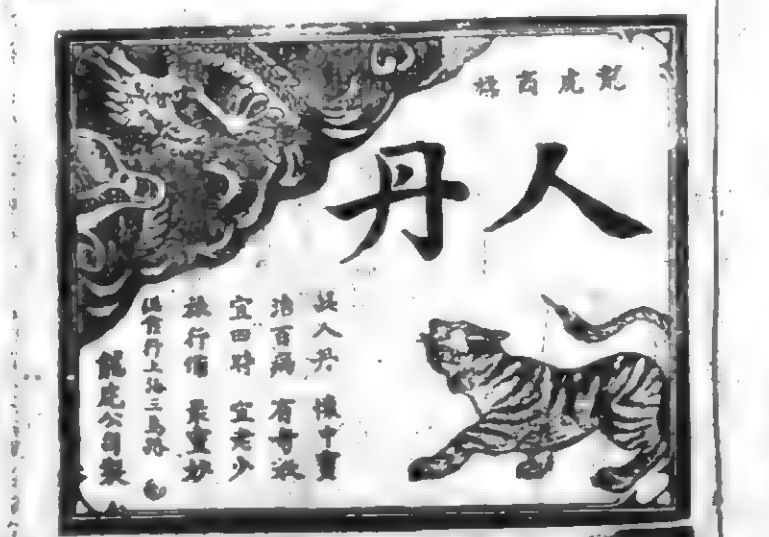 龍虎商標
人丹
此人丹 懷中寶
治百病 有奇效
宜四時 宜老少
旅行備 最重妙
總發行上海三馬路
龍虎公司製